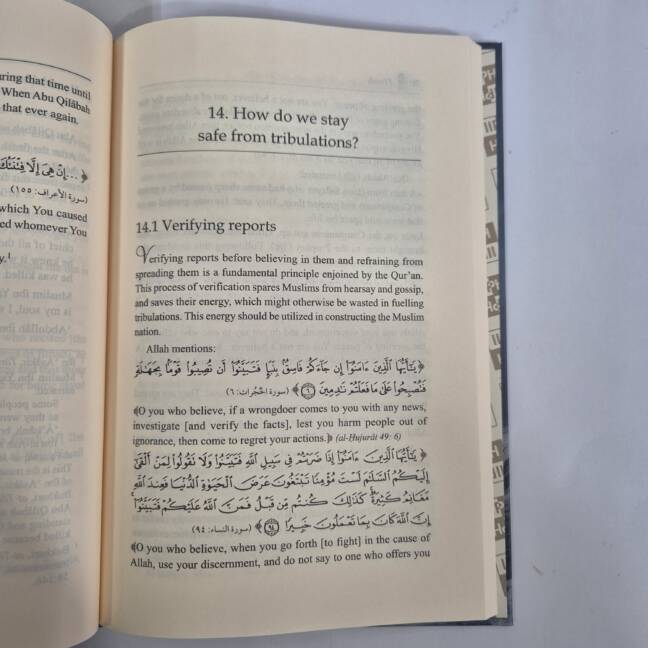 ring that time until
When Abu Qilâbah
that ever again.
﴿...إِنْ هِىَ إِلَّا فِتْنَتُكَ
(سورة الأعراف: ١٥٥)
which You caused
ed whomever You
y.¹
14. How do we stay
safe from tribulations?
14.1 Verifying reports
Verifying reports before believing in them and refraining from
spreading them is a fundamental principle enjoined by the Qur’an.
This process of verification spares Muslims from hearsay and gossip,
and saves their energy, which might otherwise be wasted in fuelling
tribulations. This energy should be utilized in constructing the Muslim
nation.
Allah mentions:
﴿يَـٰٓأَيُّهَا ٱلَّذِينَ ءَامَنُوٓا۟ إِن جَآءَكُمْ فَاسِقٌۢ بِنَبَإٍ فَتَبَيَّنُوٓا۟ أَن تُصِيبُوا۟ قَوْمًۢا بِجَهَـٰلَةٍ
فَتُصْبِحُوا۟ عَلَىٰ مَا فَعَلْتُمْ نَـٰدِمِينَ ٦﴾ (سورة الحُجُرات: ٦)
﴾O you who believe, if a wrongdoer comes to you with any news,
investigate [and verify the facts], lest you harm people out of
ignorance, then come to regret your actions.﴿ (al-Ḥujurât 49: 6)
﴿يَـٰٓأَيُّهَا ٱلَّذِينَ ءَامَنُوٓا۟ إِذَا ضَرَبْتُمْ فِى سَبِيلِ ٱللَّهِ فَتَبَيَّنُوا۟ وَلَا تَقُولُوا۟ لِمَنْ أَلْقَىٰٓ
إِلَيْكُمُ ٱلسَّلَـٰمَ لَسْتَ مُؤْمِنًا تَبْتَغُونَ عَرَضَ ٱلْحَيَوٰةِ ٱلدُّنْيَا فَعِندَ ٱللَّهِ
مَغَانِمُ كَثِيرَةٌ ۚ كَذَٰلِكَ كُنتُم مِّن قَبْلُ فَمَنَّ ٱللَّهُ عَلَيْكُمْ فَتَبَيَّنُوٓا۟ ۚ
إِنَّ ٱللَّهَ كَانَ بِمَا تَعْمَلُونَ خَبِيرًا ٩٤﴾ (سورة النساء: ٩٤)
﴾O you who believe, when you go forth [to fight] in the cause of
Allah, use your discernment, and do not say to one who offers you